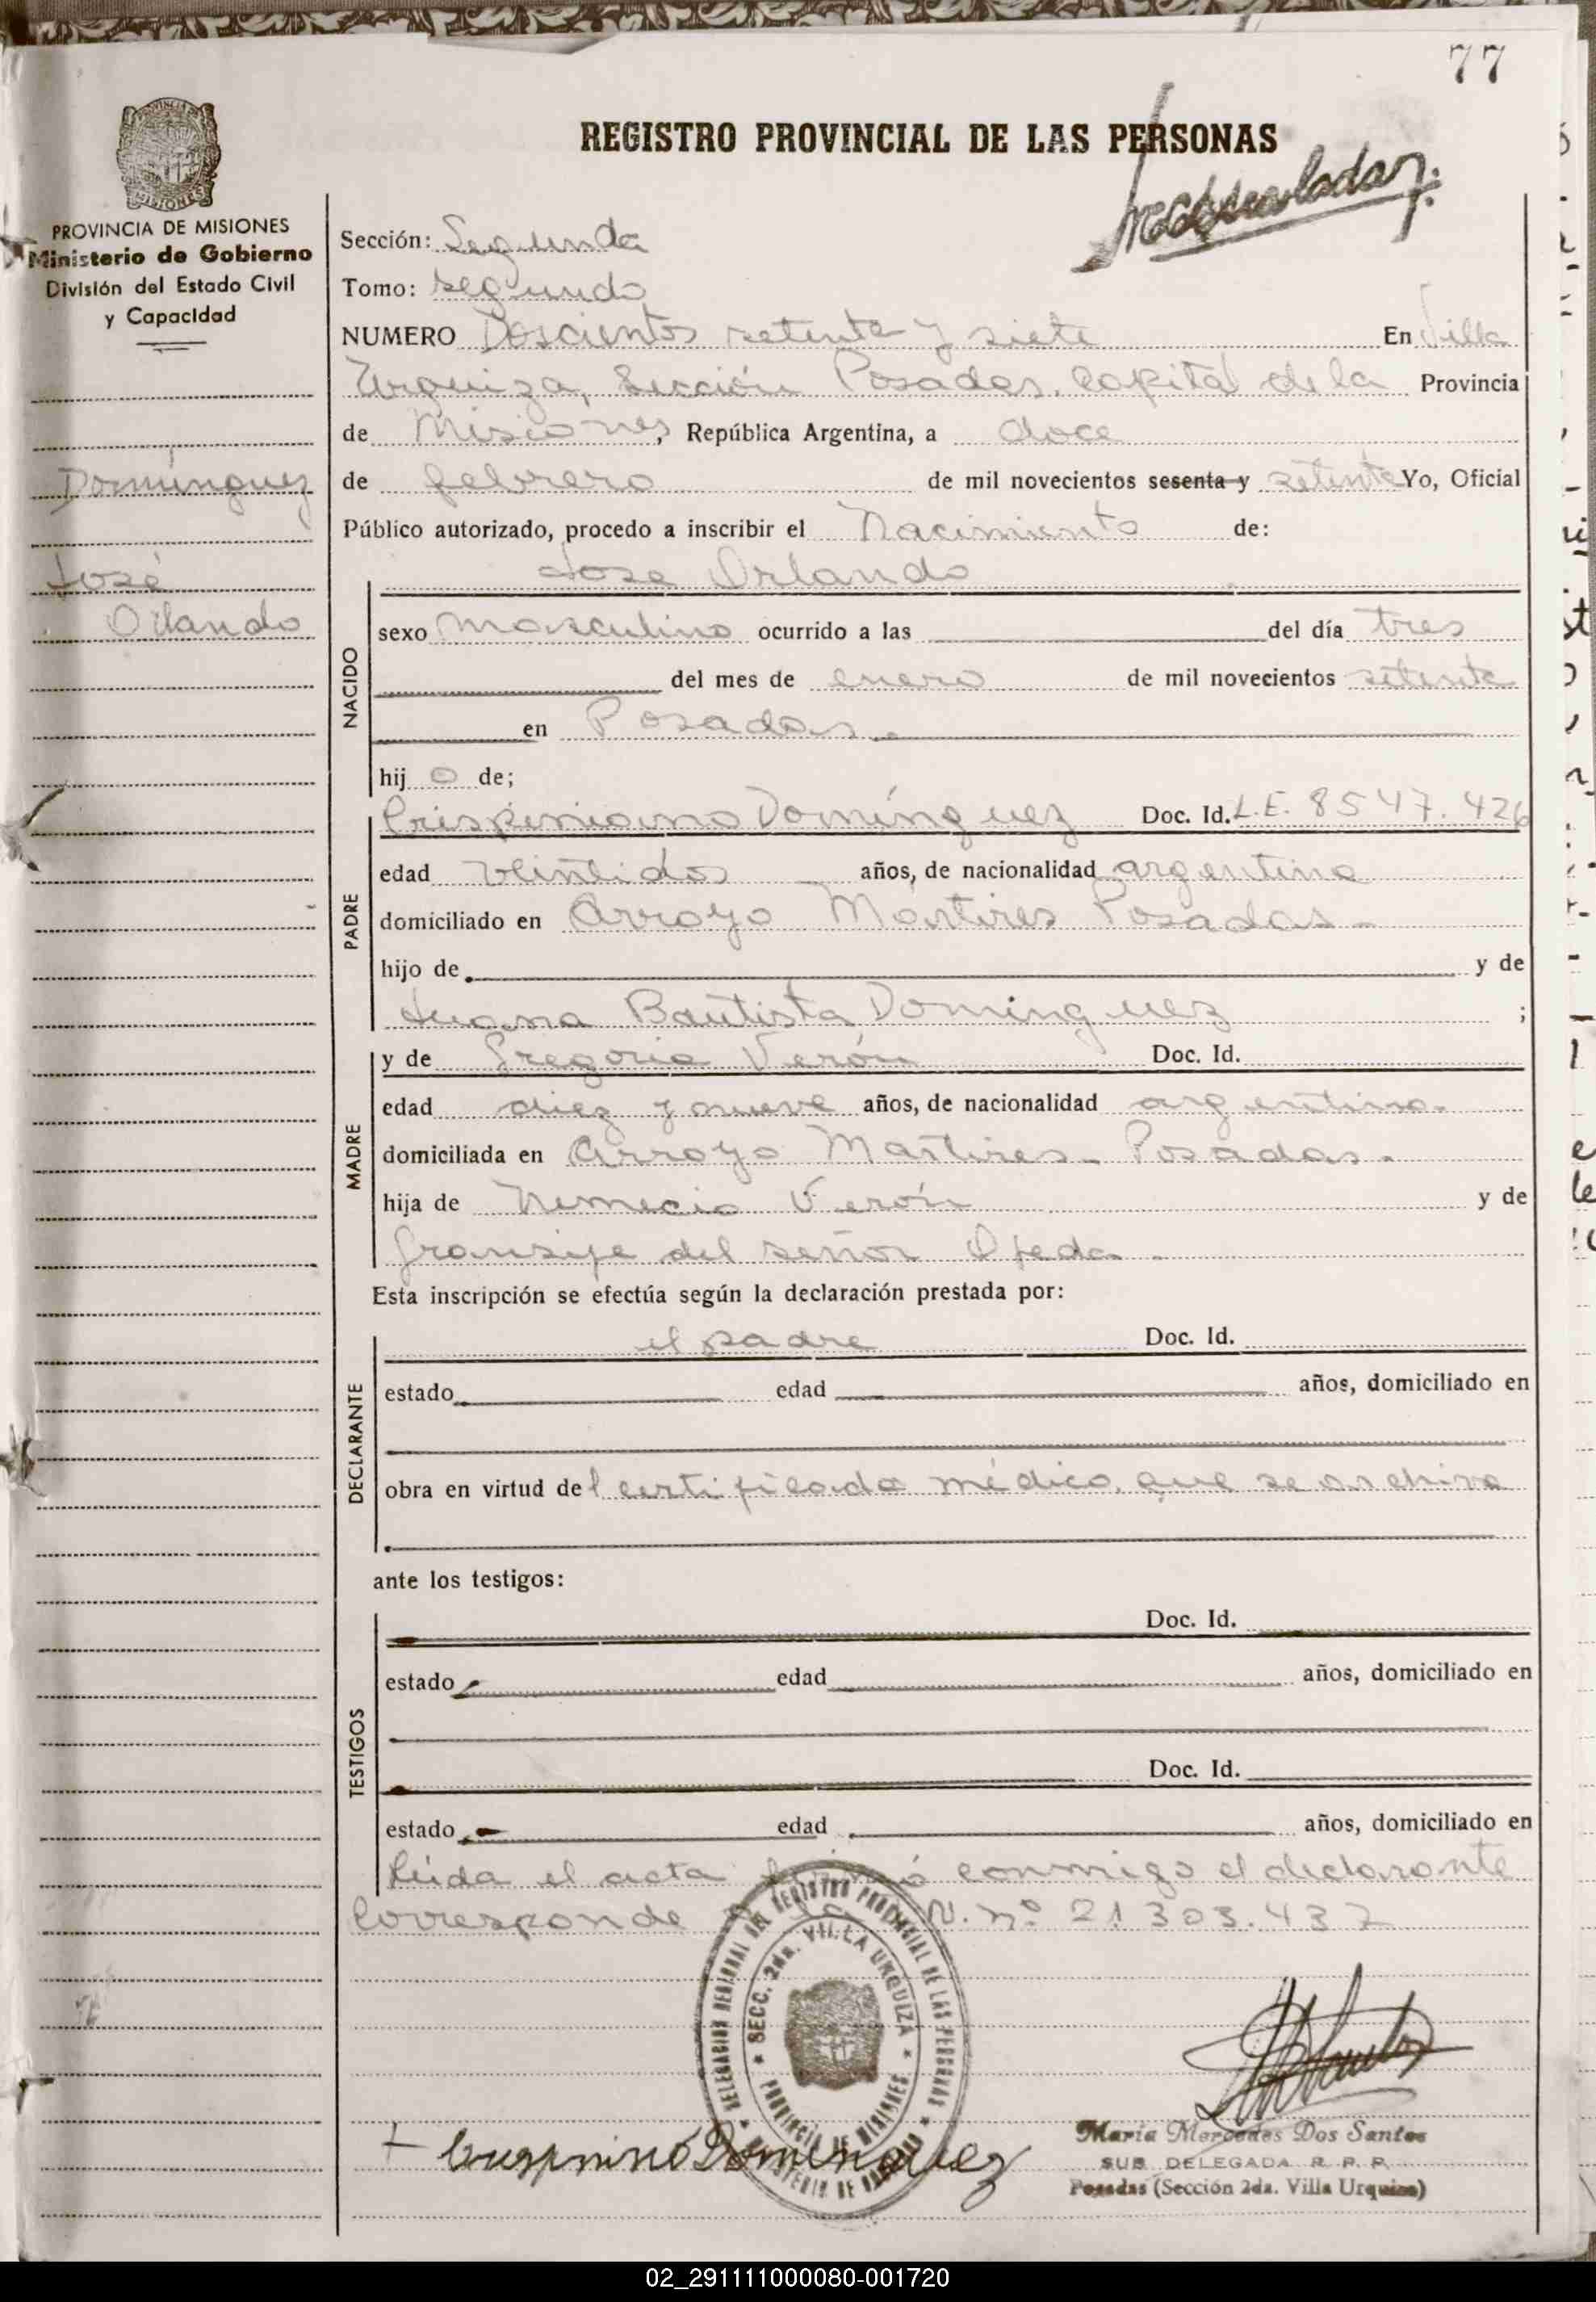 77
REGISTRO PROVINCIAL DE LAS PERSONAS
PROVINCIA DE MISIONES
Ministerio de Gobierno
División del Estado Civil
y Capacidad
Domínguez
José
Orlando
Sección: Segunda
Tomo: segundo
NUMERO Doscientos setenta y siete En Villa
Urquiza, Sección Posadas, Capital de la Provincia
de Misiones, República Argentina, a doce
de febrero de mil novecientos sesenta y setenta Yo, Oficial
Público autorizado, procedo a inscribir el Nacimiento de:
José Orlando
NACIDO
sexo masculino ocurrido a las del día tres
del mes de enero de mil novecientos setenta
en Posadas.
hij o de;
PADRE
Crispiniano Domínguez Doc. Id. L.E. 8547.426
edad veintidos años, de nacionalidad argentina
domiciliado en Arroyo Mártires Posadas-
hijo de y de
Juana Bautista Domínguez ;
MADRE
y de Gregoria Verón Doc. Id.
edad diez y nueve años, de nacionalidad argentina.
domiciliada en Arroyo Mártires - Posadas.
hija de Nemecio Verón y de
del señor Ojeda
Esta inscripción se efectúa según la declaración prestada por:
DECLARANTE
el padre Doc. Id.
estado edad años, domiciliado en
obra en virtud del certificado médico que se archiva
ante los testigos:
TESTIGOS
Doc. Id.
estado edad años, domiciliado en
Doc. Id.
estado edad años, domiciliado en
Leída el acta firmó conmigo el declarante
Corresponde a la N. nº 21.303.437
DELEGACION REGIONAL DEL REGISTRO PROVINCIAL DE LAS PERSONAS
SECC. 2da. VILLA URQUIZA
PROVINCIA DE MISIONES
MINISTERIO DE
Domínguez
María Mercedes Dos Santos
SUB DELEGADA R. P. P.
Posadas (Sección 2da. Villa Urquiza)
02_291111000080-001720